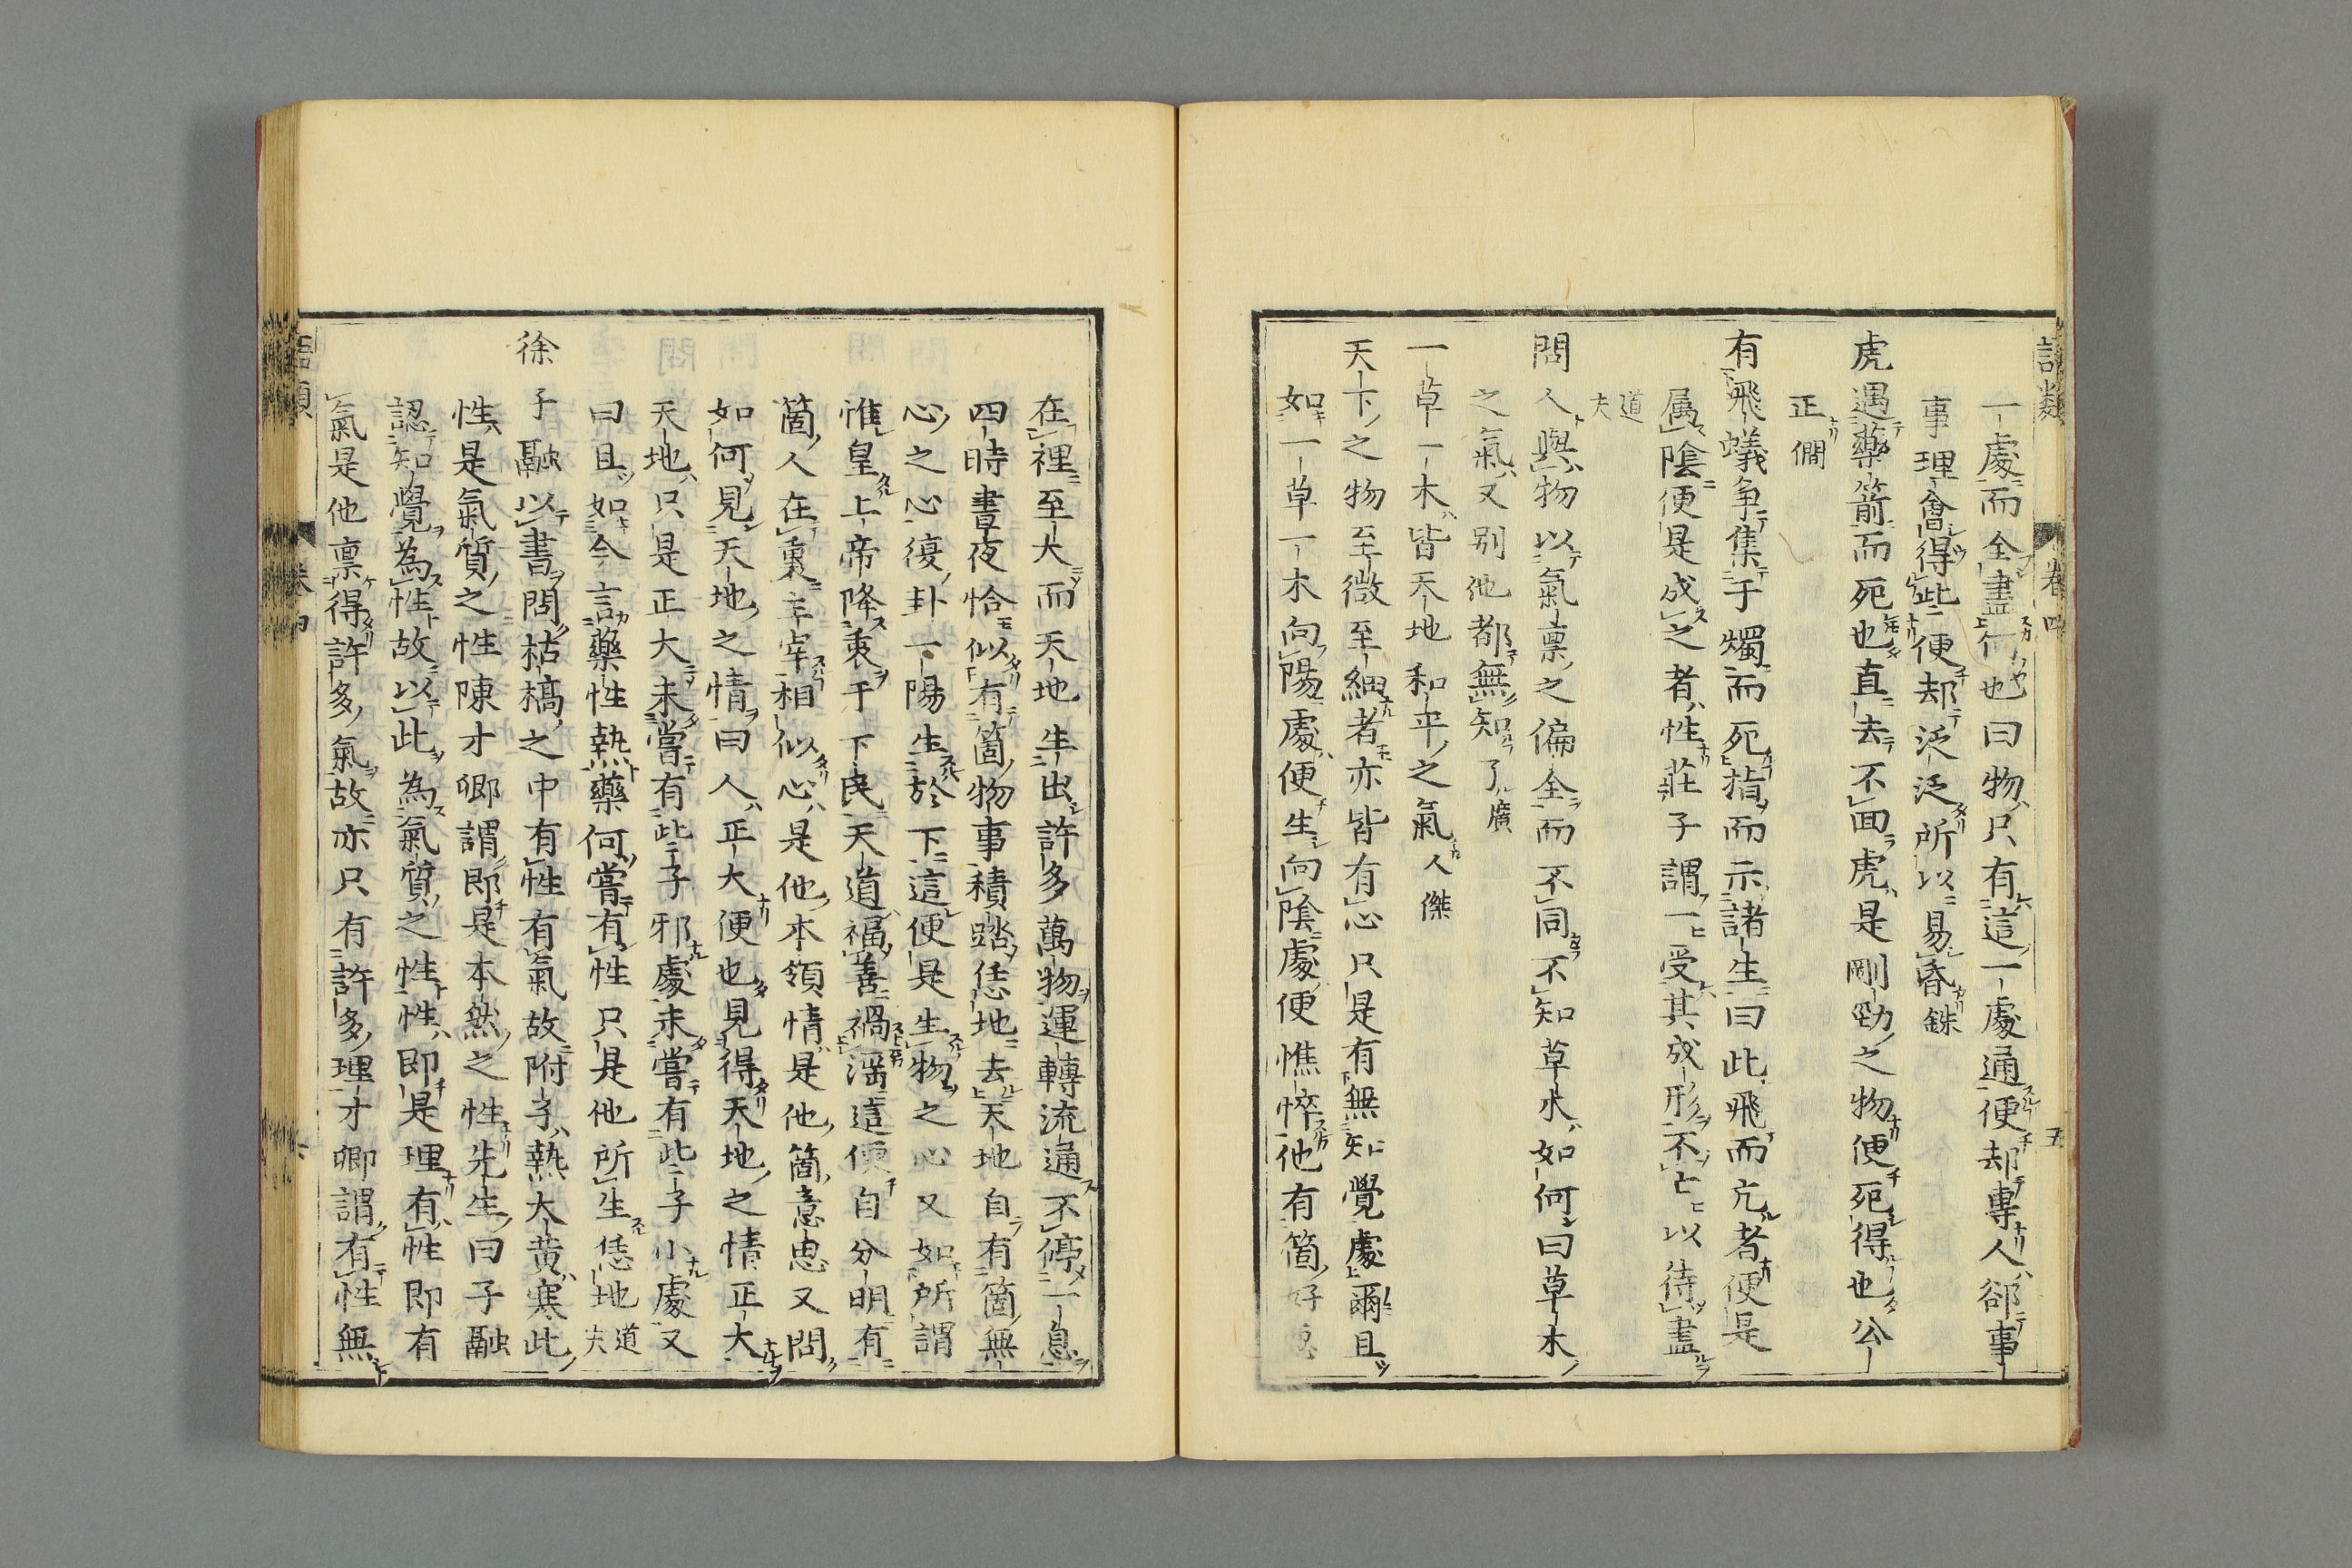 語類 卷四 五
一處而全盡何也曰物只有這一處通便却專人卻事
事理會得些便却泛泛所以易昏銖
虎遇藥箭而死也直去不面虎是剛勁之物便死得也公
正僩
有飛蟻争集于燭而死指而示諸生曰此飛而亢者便是
属陰便是成之者性莊子謂一受其成形不亡以待盡
道夫
問人與物以氣禀之偏全而不同不知草木如何曰草木
之氣又别他都無知了廣
一草一木皆天地和平之氣人傑
天下之物至微至細者亦皆有心只是有無知覺處爾且
如一草一木向陽處便生向陰處便憔悴他有箇好惡
在裡至大而天地生出許多萬物運轉流通不停一息
四時晝夜恰似有箇物事積踏恁地去天地自有箇無
心之心復卦一陽生於下這便是生物之心又如所謂
惟皇上帝降衷于下民天道福善禍淫這便自分明有
箇人在裏主宰相似心是他本領情是他箇意思又問
如何見天地之情曰人正大便也見得天地之情正大
天地只是正大未嘗有些子邪處未嘗有些子小處又
曰且如今言藥性熱藥何嘗有性只是他所生恁地道夫
徐子融以書問枯槁之中有性有氣故附子熱大黄寒此
性是氣質之性陳才卿謂即是本然之性先生曰子融
認知覺為性故以此為氣質之性性即是理有性即有
氣是他禀得許多氣故亦只有許多理才卿謂有性無
語類 卷四 六